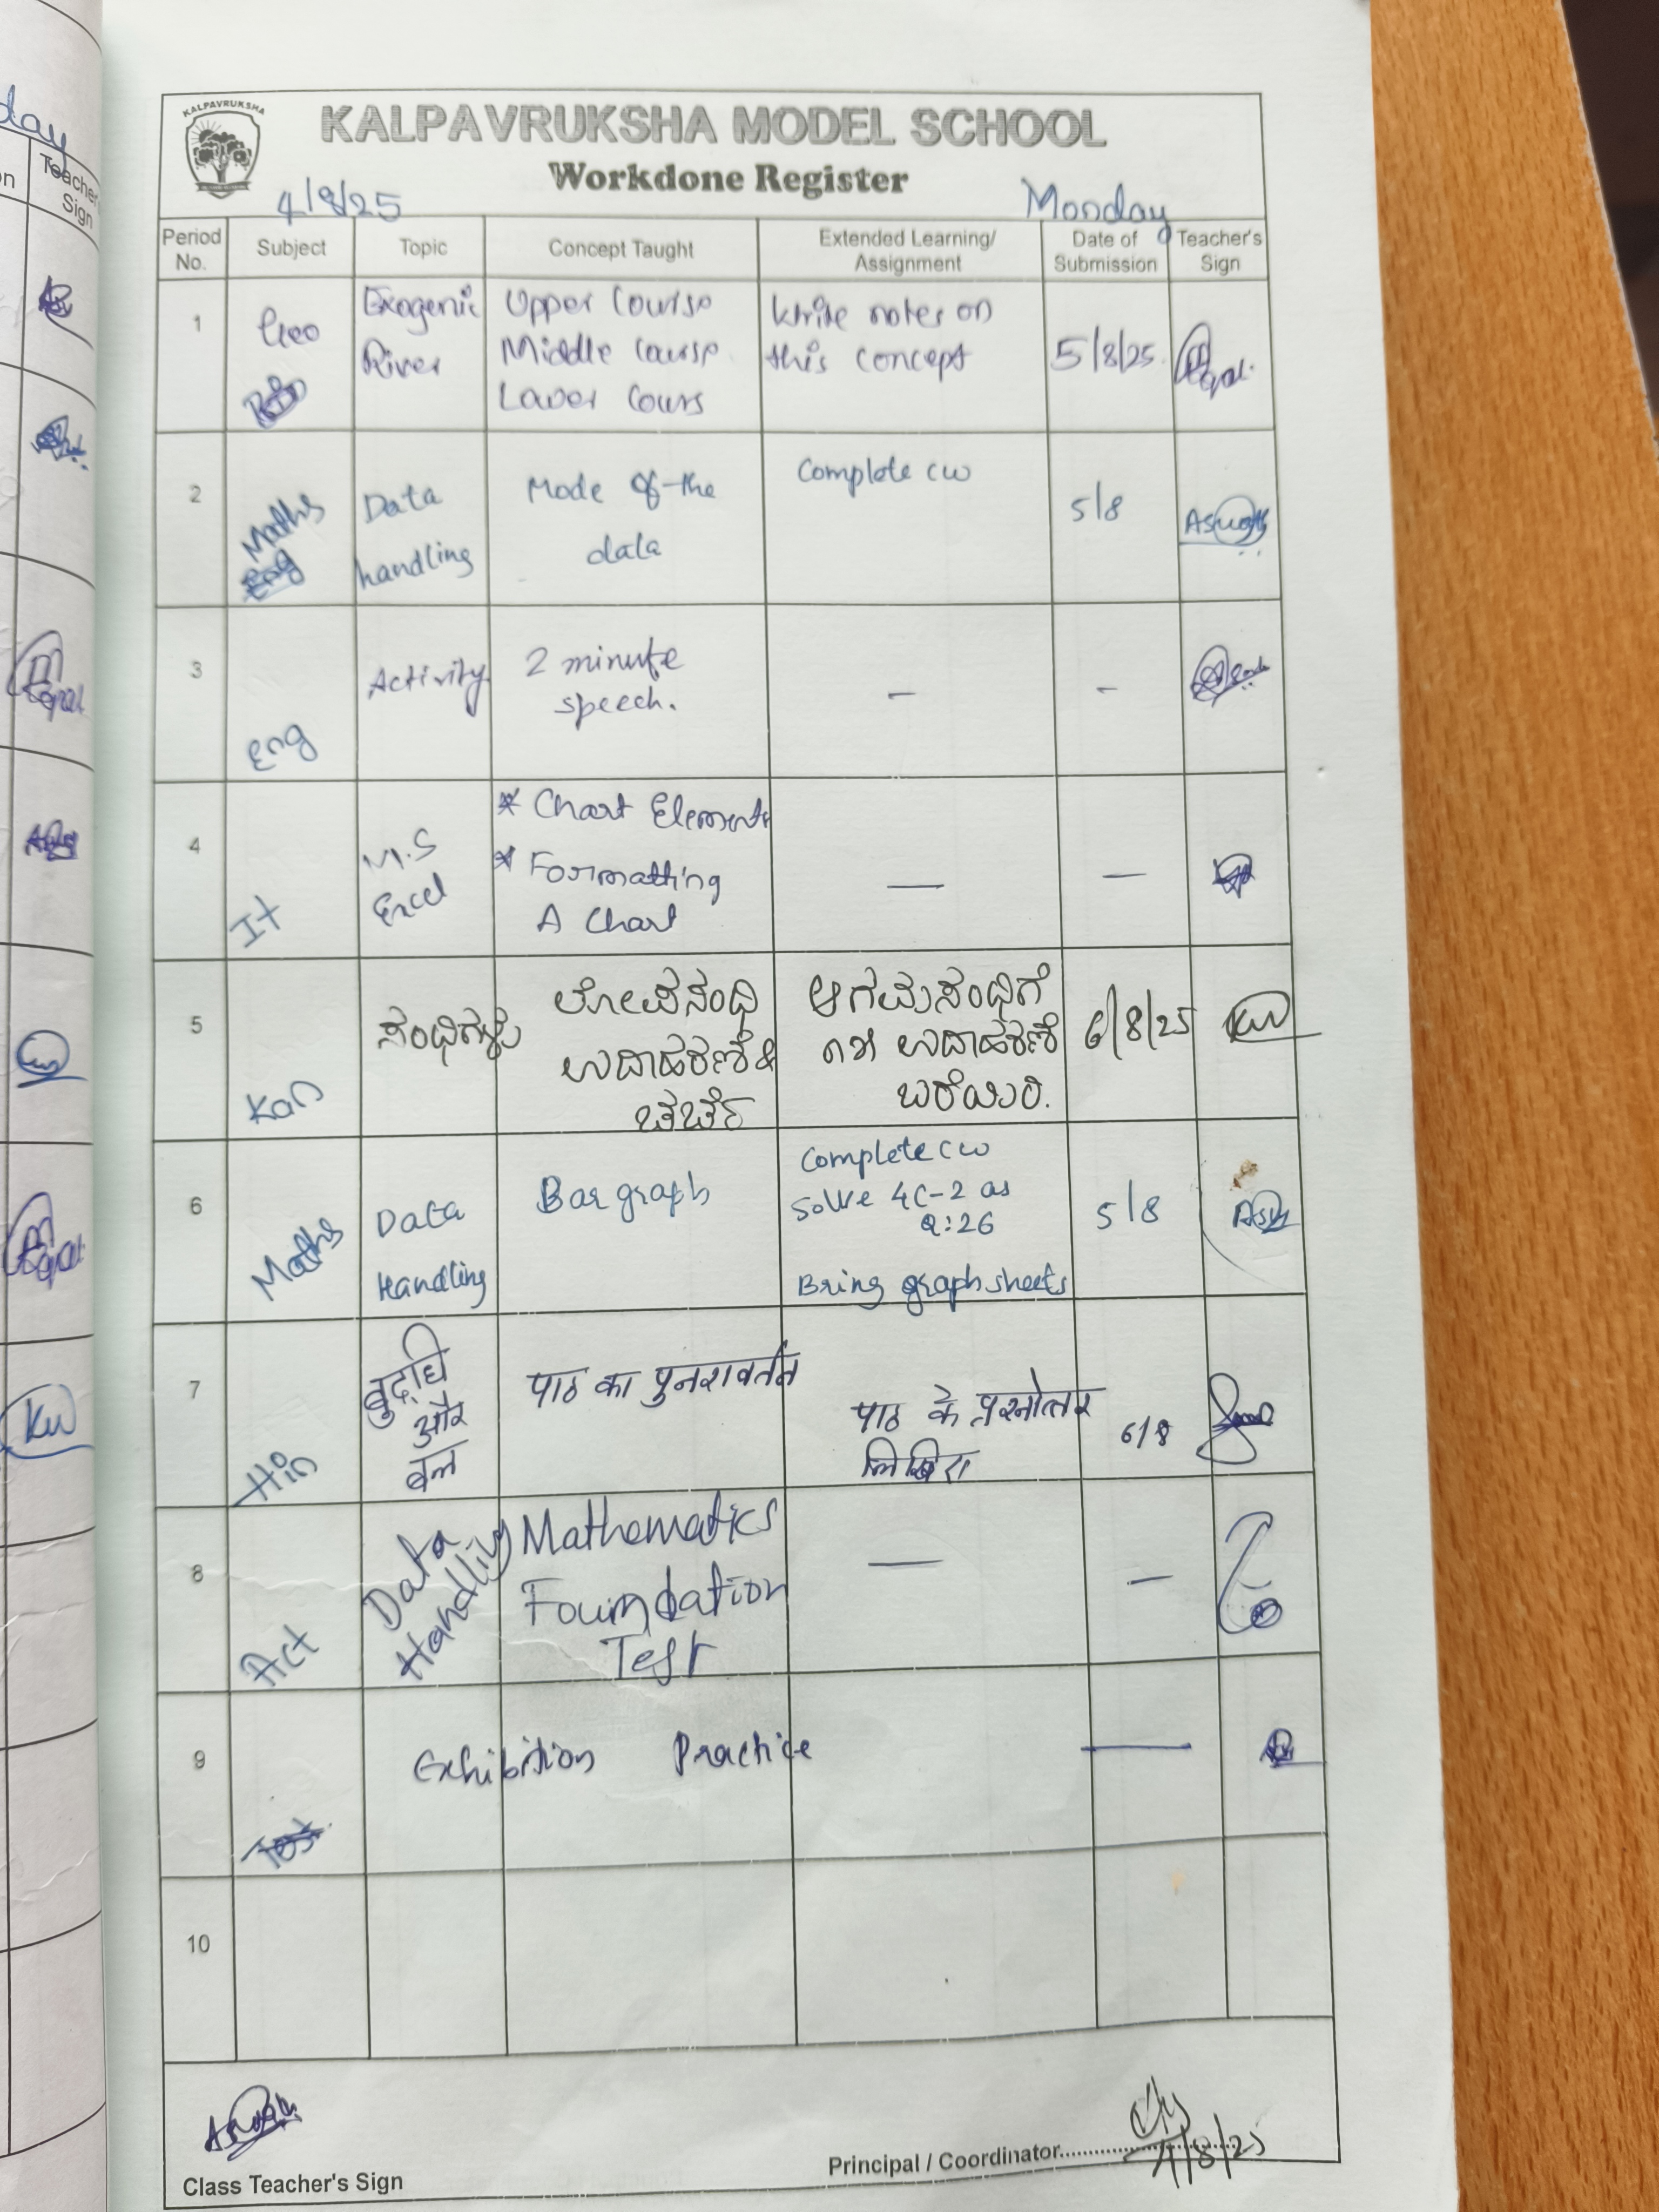 day
on
Teacher's
Sign
KALPAVRUKSHA
KALPAVRUKSHA MODEL SCHOOL
Workdone Register
4/8/25 Monday
Period No. Subject Topic Concept Taught Extended Learning/ Assignment Date of Submission Teacher's Sign
1 Geo Exogenic Upper Course Write notes on
River Middle Course this concept 5/8/25.
Lower Cours
2 Maths Data Mode of the Complete cw 5/8
Eng handling data
3 Eng Activity 2 minute — —
speech.
4 It M.S * Chart Elements
Excel * Formatting — —
A Chart
5 Kan ಸಂಧಿಗಳು ಲೋಪಸಂಧಿ ಆಗಮಸಂಧಿಗೆ 6/8/25 KW
ಉದಾಹರಣೆ & ೧೫ ಉದಾಹರಣೆ
ಚರ್ಚೆ ಬರೆಯಿರಿ.
6 Maths Data Bar graph Complete cw 5/8
Handling Solve 4C-2 as
Q:26
Bring graph sheets
7 Hin बुद्धि पाठ का पुनरावर्तन पाठ के प्रश्नोत्तर 6/8
और लिखिए
बल
8 Act Data Mathematics — —
Handling Foundation
Test
9 Test Exhibition Practice —
10
Class Teacher's Sign
Principal / Coordinator
4/8/25